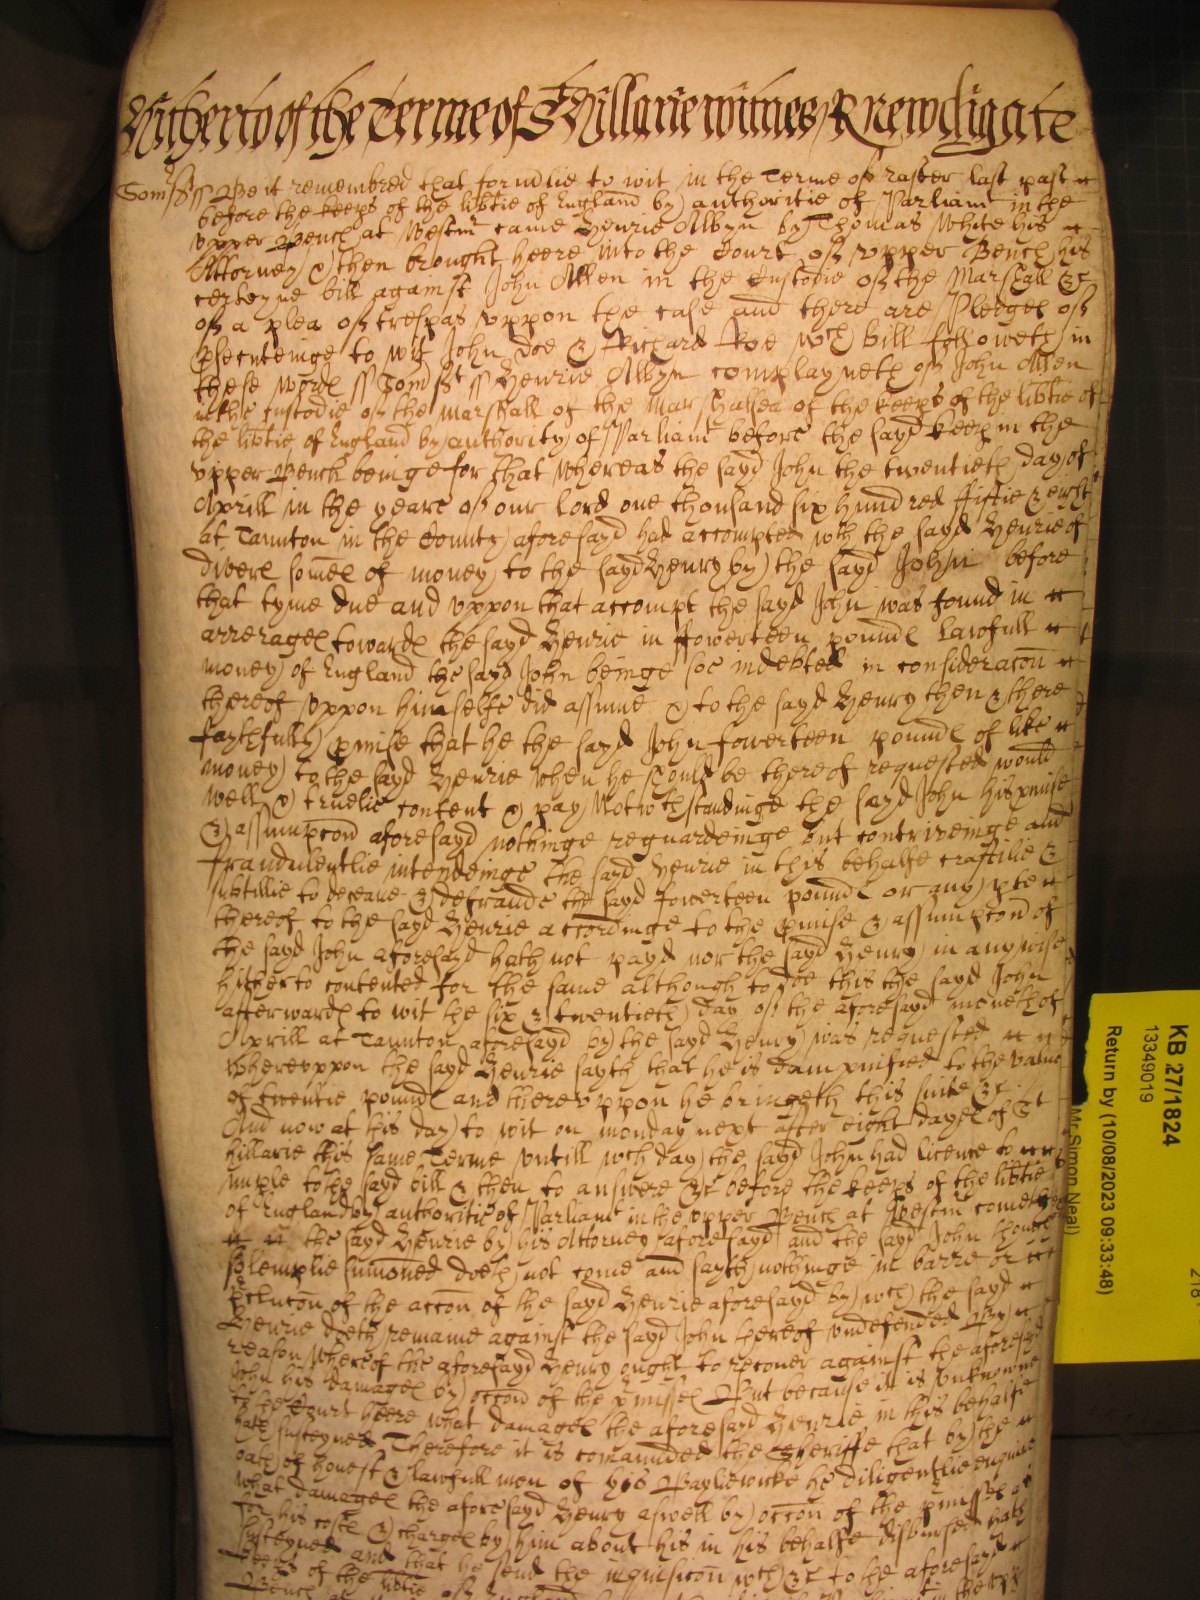 Hitherto of the Terme of St Hillarie witnes R Newdigate
Somss ss Be it remembred that formlie to wit in the Terme of Easter last past
before the keeps of the libtie of England by authoritie of Parliamt in the
Vpper Bench at Westmr came Henrie Albyn by Thomas White his
Attorney & then brought heere into the Court of Vpper Bench his
certeyne bill against John Allen in the Custodie of the Marshall &c
of a plea of trespas vppon the case and there are Pledges of
psecuteinge to wit John Doe & Richard Roe wch bill followeth in
these words ss Somst ss Henrie Albyn complayneth of John Allen
in the custodie of the Marshall of the Marshalsea of the keeps of the libtie of
the libtie of England by authority of Parliamt before the sayd keeps in the
vpper Bench beinge for that Whereas the sayd John the twentieth day of
Aprill in the yeare of our Lord one thousand six hundred fiftie & eight
at Taunton in the County aforesayd had accompted wth the sayd Henrie of
divers somes of money to the sayd Henry by the sayd John before
that tyme due and vppon that accompt the sayd John was found in
arrerages towards the sayd Henrie in fowerteen pounds lawfull
money of England the sayd John beinge soe indebted in consideracon
thereof vppon himselfe did assume & to the sayd Henry then & there
faythfully pmise that he the sayd John fowerteen pounds of like
money to the sayd Henrie when he should be thereof requested would
well & truelie content & pay Notwthstandinge the sayd John his pmise
& assumpcon aforesayd nothinge reguardeinge but contriveinge and
fraudulentlie intendeinge the sayd Henrie in this behalfe craftilie &
subtillie to deceave & defraude the sayd fowerteen pounds or any pte
thereof to the sayd Henrie accordinge to the pmise & assumpcon of
the sayd John aforesayd hath not payd nor the sayd Henry in any wise
hitherto contented for the same although to doe this the sayd John
afterwards to wit the six & twentieth day of the aforesayd moneth of
Aprill at Taunton aforesayd by the sayd Henry was requested
Wherevppon the sayd Henrie sayth that he is dampnified to the value
of twentie pounds and therevppon he bringeth this suite &c
And now at this day to wit on monday next after eight dayes of St
hillarie this same Terme vntill wch day the sayd John had licence to
imple to the sayd bill & then to answere &c before the keeps of the libtie
of England by authoritie of Parliamt in the vpper Bench at Westmr cometh
the sayd Henrie by his Attorney aforesayd and the sayd John though
solemplie sumoned doeth not come and sayth nothinge in barre or
pclucon of the accon of the sayd Henrie aforesayd by wch the sayd
Henrie doeth remaine against the sayd John hereof vndefended By
reason whereof the aforesayd Henry ought to recouer against the aforesayd
John his damages by occon of the pmisses But because it is vnknowne
to the Court heere what damages the aforesayd Henrie in this behalfe
hath susteyned Therefore it is comaunded the Sheriffe that by the
oath of honest & lawfull men of his Bayliewicke he diligentlie enquire
what damages the aforesayd Henry aswell by occon of the pmisses as
for his costs & charges by him about his in his behalfe disbursed hath
susteyned and that he send the inquisicon wch &c to the aforesayd
keeps of the libtie of England
Bench
KB 27/1824
13349019
Return by (10/08/2023 09:33:48)
Mr Simon Neal)